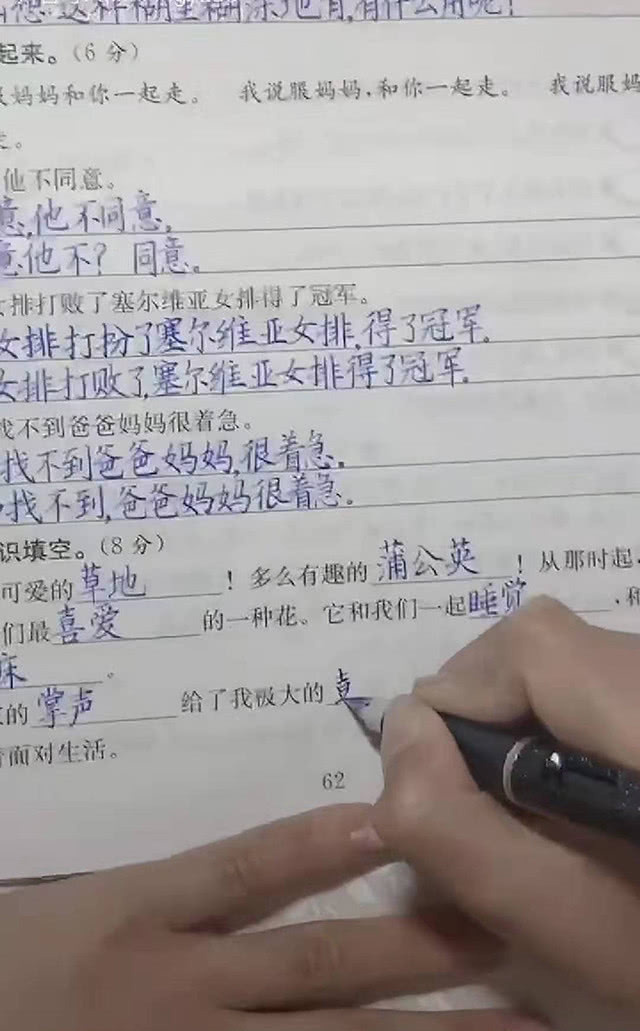 这样糊里糊涂地有,有什么用呢!
起来。(6分)
妈妈和你一起走。 我说服妈妈,和你一起走。 我说服妈
他不同意。
意,他不同意。
意他不? 同意。
女排打败了塞尔维亚女排得了冠军。
女排打扮了塞尔维亚女排,得了冠军。
女排打败了,塞尔维亚女排得了冠军。
找不到爸爸妈妈很着急。
找不到爸爸妈妈,很着急。
找不到,爸爸妈妈很着急。
识填空。(8分)
可爱的草地!多么有趣的蒲公英!从那时起,
们最喜爱的一种花。它和我们一起睡觉,和
床。
的掌声给了我极大的
面对生活。
62